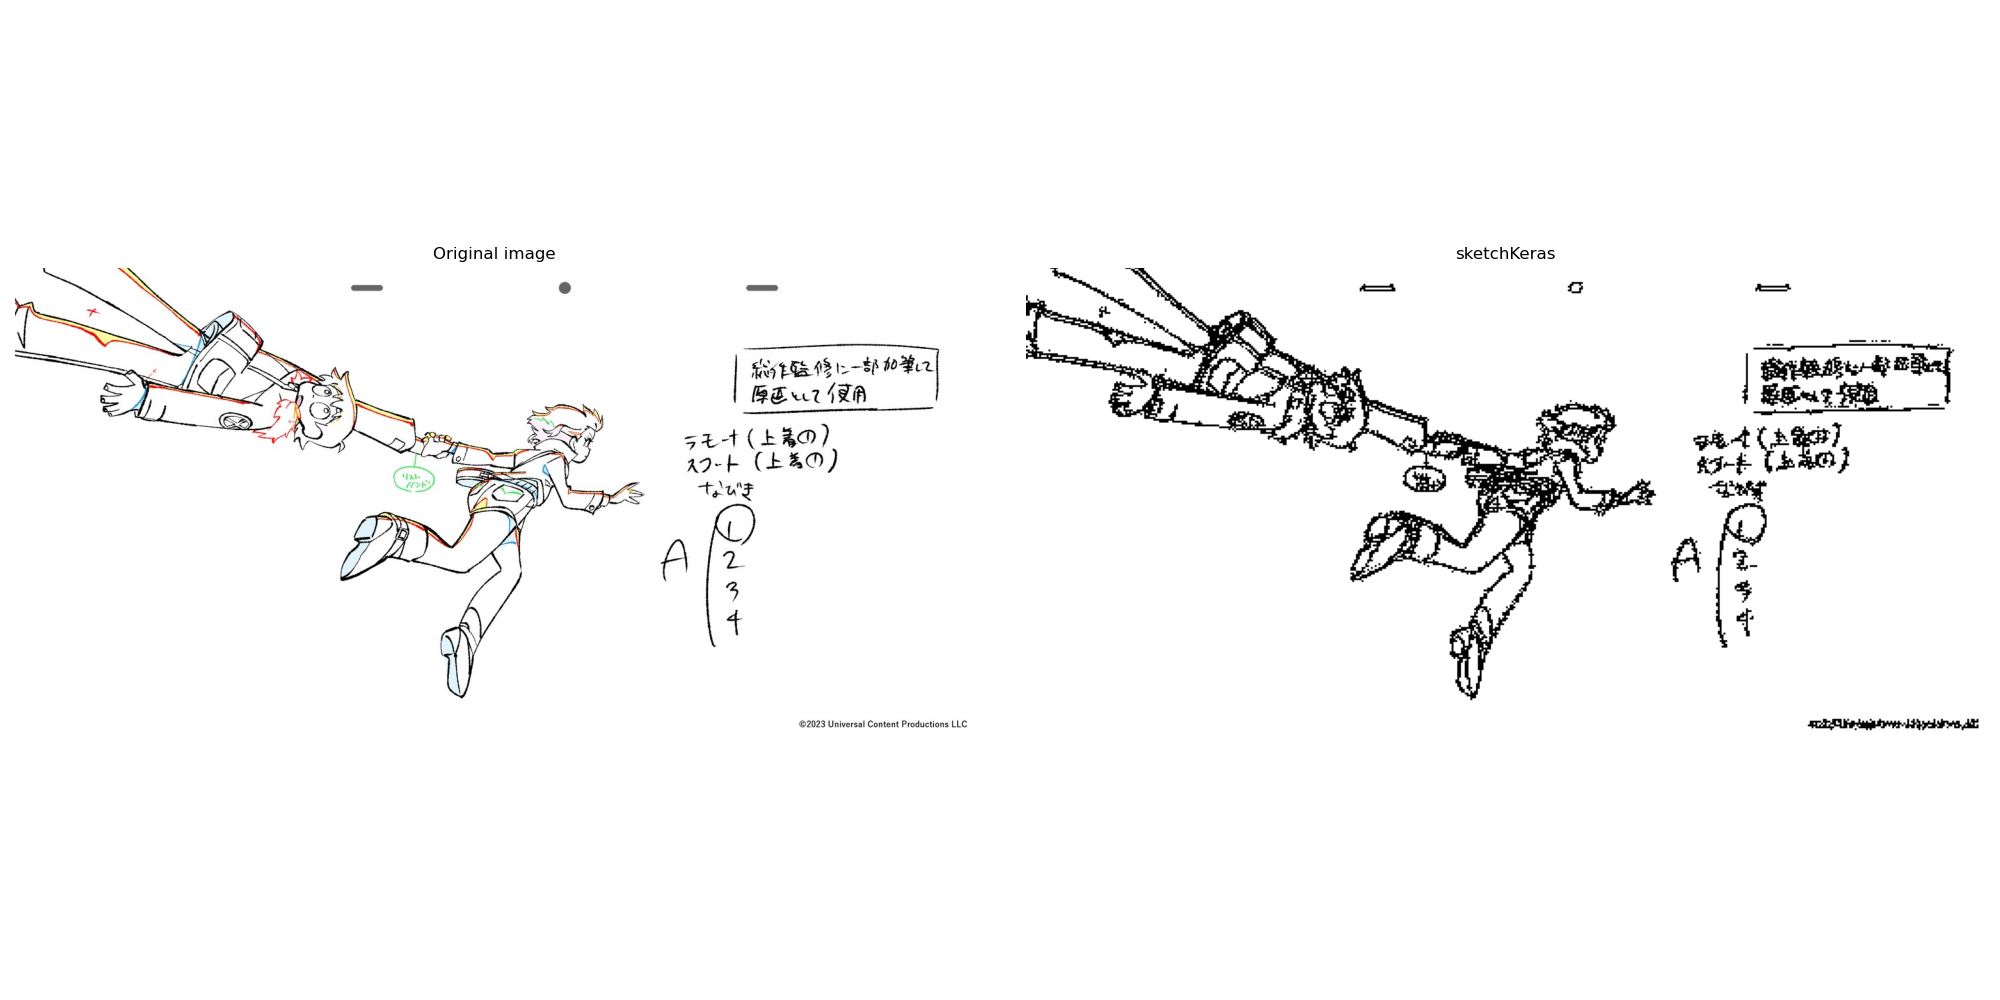 Original image
総作監修に一部加筆して
原画として使用
ラモーナ(上着の)
スコート(上着の)
なびき
リスト
バンド
A
1
2
3
4
©2023 Universal Content Productions LLC
sketchKeras
A
1
2
3
4